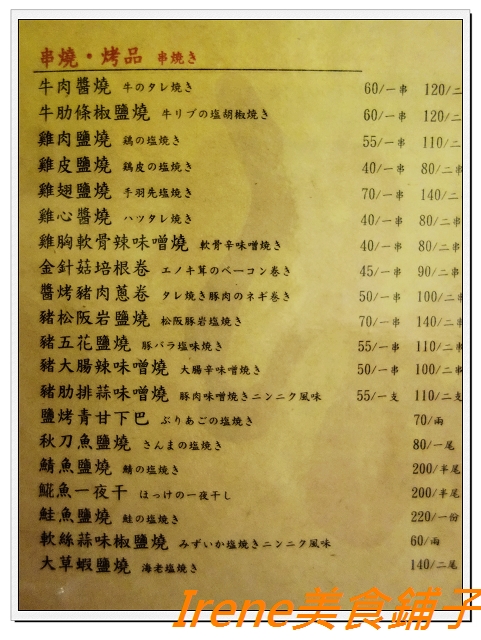 串燒・烤品 串燒き
牛肉醬燒 牛のタレ焼き 60/一串 120/二
牛肋條椒鹽燒 牛リブの塩胡椒焼き 60/一串 120/二
雞肉鹽燒 鶏の塩焼き 55/一串 110/二
雞皮鹽燒 鶏皮の塩焼き 40/一串 80/二串
雞翅鹽燒 手羽先塩焼き 70/一串 140/二
雞心醬燒 ハツタレ焼き 40/一串 80/二串
雞胸軟骨辣味噌燒 軟骨辛味噌焼き 40/一串 80/二串
金針菇培根卷 エノキ茸のベーコン巻き 45/一串 90/二串
醬烤豬肉蔥卷 タレ焼き豚肉のネギ巻き 50/一串 100/二串
豬松阪岩鹽燒 松阪豚岩塩焼き 70/一串 140/二串
豬五花鹽燒 豚バラ塩味焼き 55/一串 110/二串
豬大腸辣味噌燒 大腸辛味噌焼き 50/一串 100/二串
豬肋排蒜味噌燒 豚肉味噌焼きニンニク風味 55/一支 110/二支
鹽烤青甘下巴 ぶりあごの塩焼き 70/兩
秋刀魚鹽燒 さんまの塩焼き 80/一尾
鯖魚鹽燒 鯖の塩焼き 200/半尾
鯱魚一夜干 ほっけの一夜干し 200/半尾
鮭魚鹽燒 鮭の塩焼き 220/一份
軟絲蒜味椒鹽燒 みずいか塩焼きニンニク風味 60/兩
大草蝦鹽燒 海老塩焼き 140/二尾
Irene美食鋪子